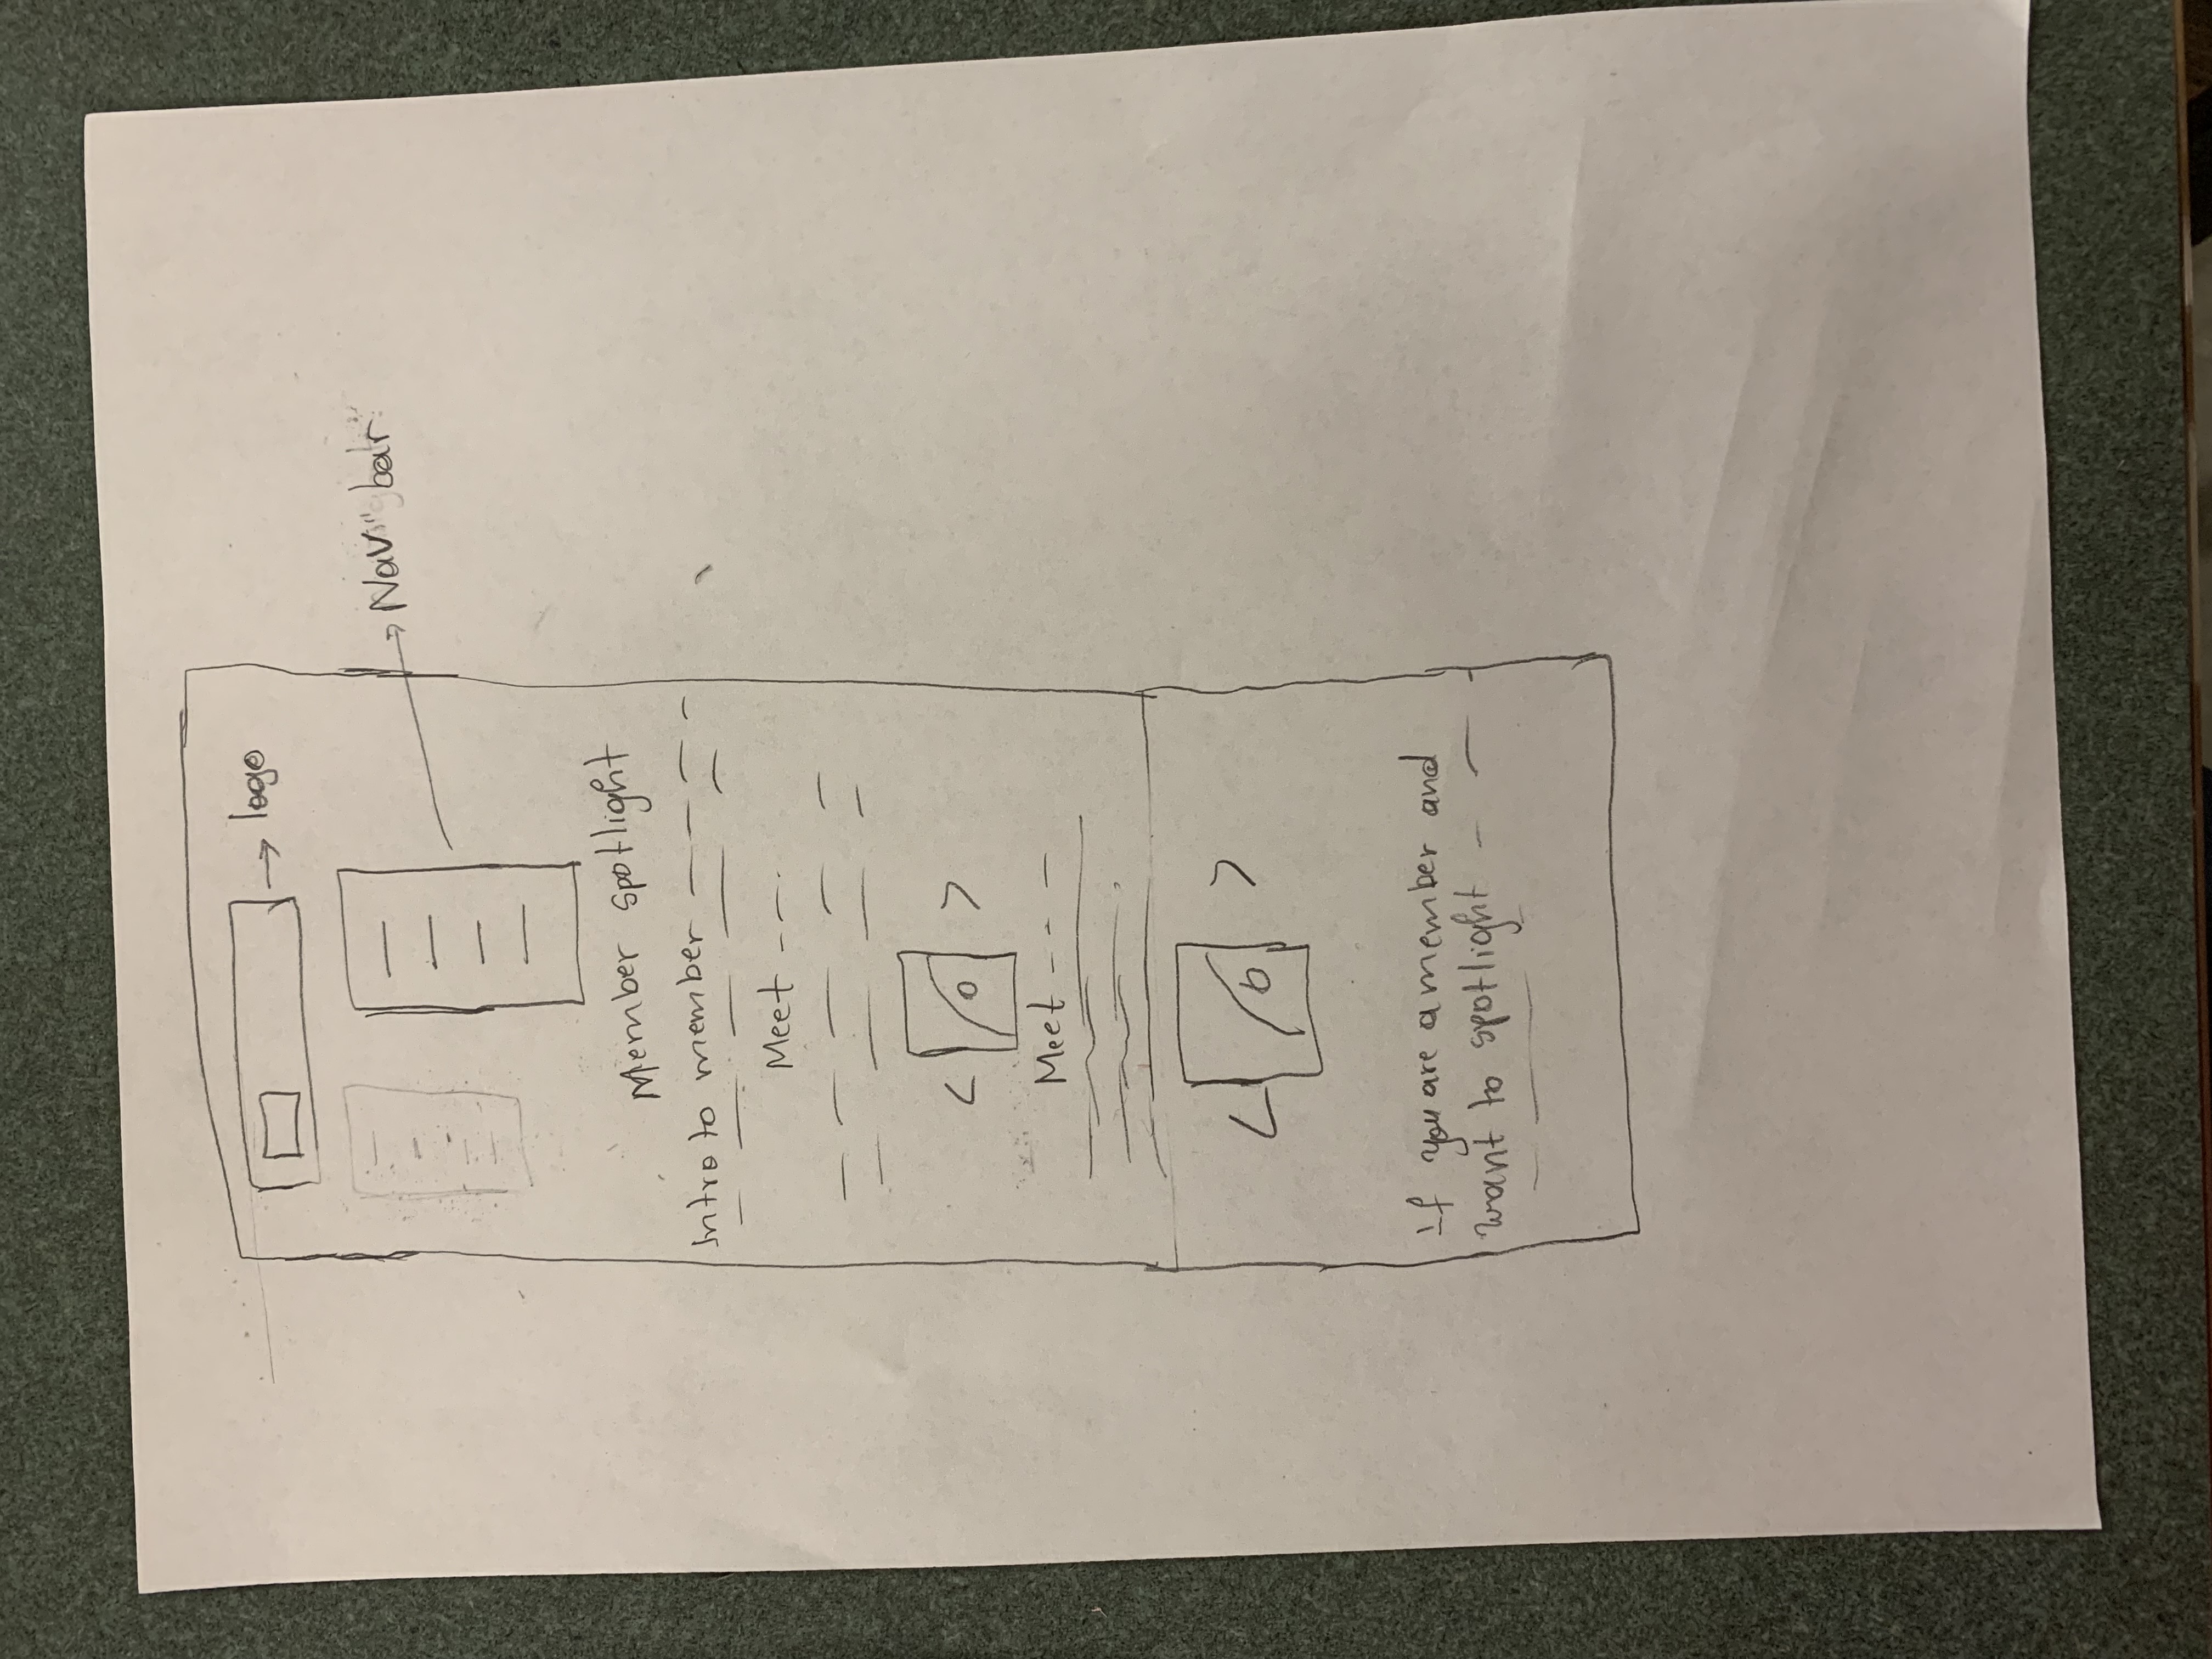 logo
Nav" bar
Member spotlight
Intro to member
Meet
Meet
If you are a member and
want to spotlight